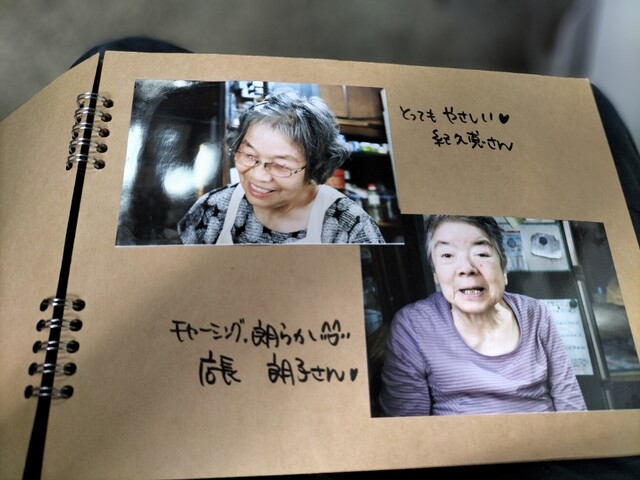 とっても やさしい♥
紀久恵さん
チャーミング、朗らか
店長 朗子さん♥